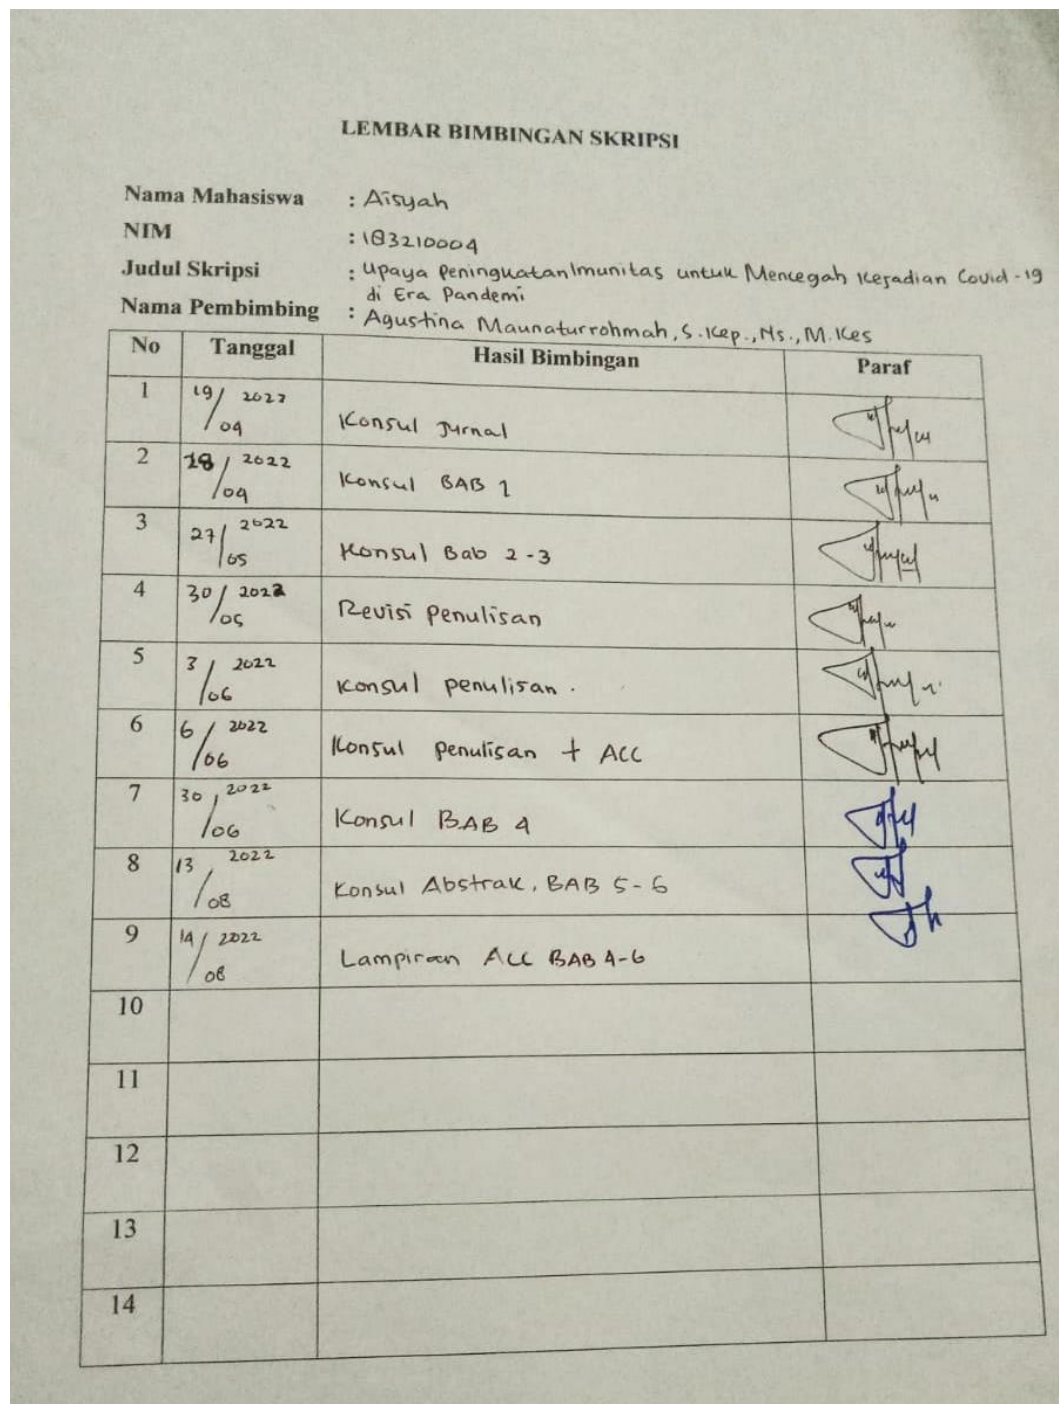 LEMBAR BIMBINGAN SKRIPSI
Nama Mahasiswa : Aisyah
NIM : 183210004
Judul Skripsi : Upaya Peningkatan Imunitas untuk Mencegah Kejadian Covid-19
di Era Pandemi
Nama Pembimbing : Agustina Maunaturrohmah, S.Kep., Ns., M.Kes
No Tanggal Hasil Bimbingan Paraf
1 19/04 2022 Konsul Jurnal
2 28/04 2022 Konsul BAB 1
3 27/05 2022 Konsul Bab 2-3
4 30/05 2022 Revisi Penulisan
5 3/06 2022 Konsul penulisan.
6 6/06 2022 Konsul penulisan + ACC
7 30/06 2022 Konsul BAB 4
8 13/08 2022 Konsul Abstrak, BAB 5-6
9 14/08 2022 Lampiran ACC BAB 4-6
10
11
12
13
14